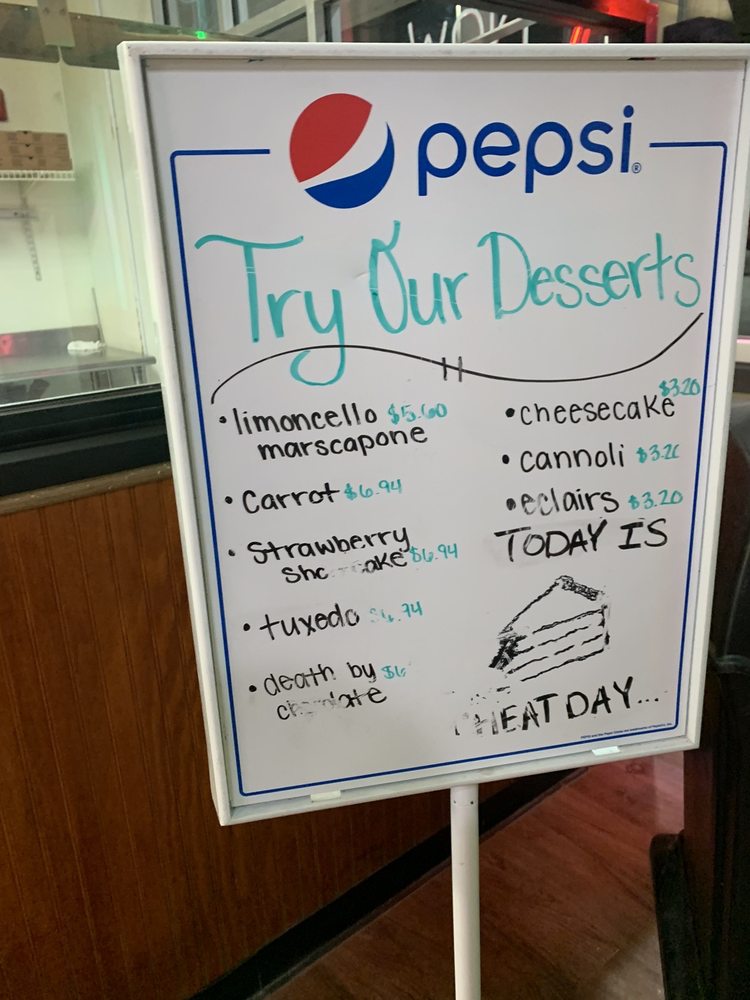 pepsi®
Try Our Desserts
• limoncello $5.60
marscapone
• Carrot $6.94
• Strawberry
$6.94
• tuxedo
• death by
• cheesecake $3.20
• cannoli
• eclairs $3.20
TODAY IS
DAY...